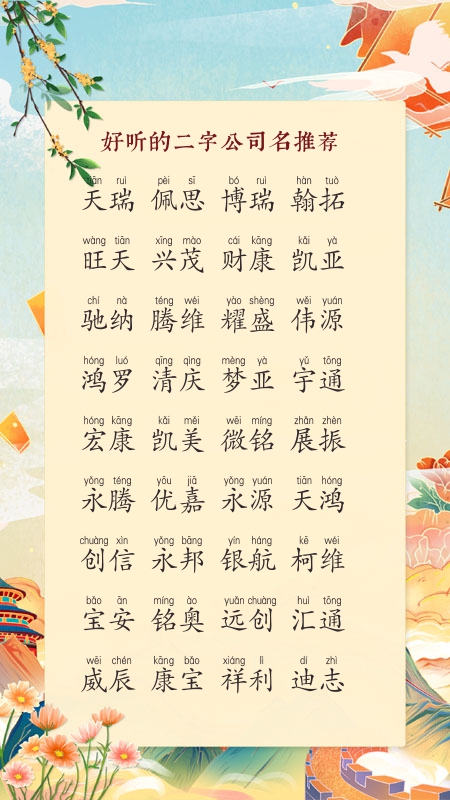 好听的二字公司名推荐
tiān ruì pèi sī bó ruì hàn tuò
天瑞 佩思 博瑞 翰拓
wàng tiān xīng mào cái kāng kǎi yà
旺天 兴茂 财康 凯亚
chí nà téng wéi yào shèng wěi yuán
驰纳 腾维 耀盛 伟源
hóng luó qīng qìng mèng yà yǔ tōng
鸿罗 清庆 梦亚 宇通
hóng kāng kǎi měi wēi míng zhǎn zhèn
宏康 凯美 微铭 展振
yǒng téng yōu jiā yǒng yuán tiān hóng
永腾 优嘉 永源 天鸿
chuàng xìn yǒng bāng yín háng kē wéi
创信 永邦 银航 柯维
bǎo ān míng ào yuǎn chuàng huì tōng
宝安 铭奥 远创 汇通
wēi chén kāng bǎo xiáng lì dí zhì
威辰 康宝 祥利 迪志